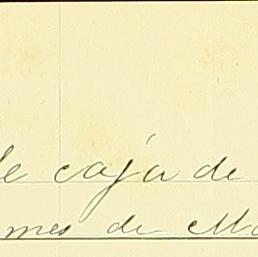 de caja de
mes de Ma